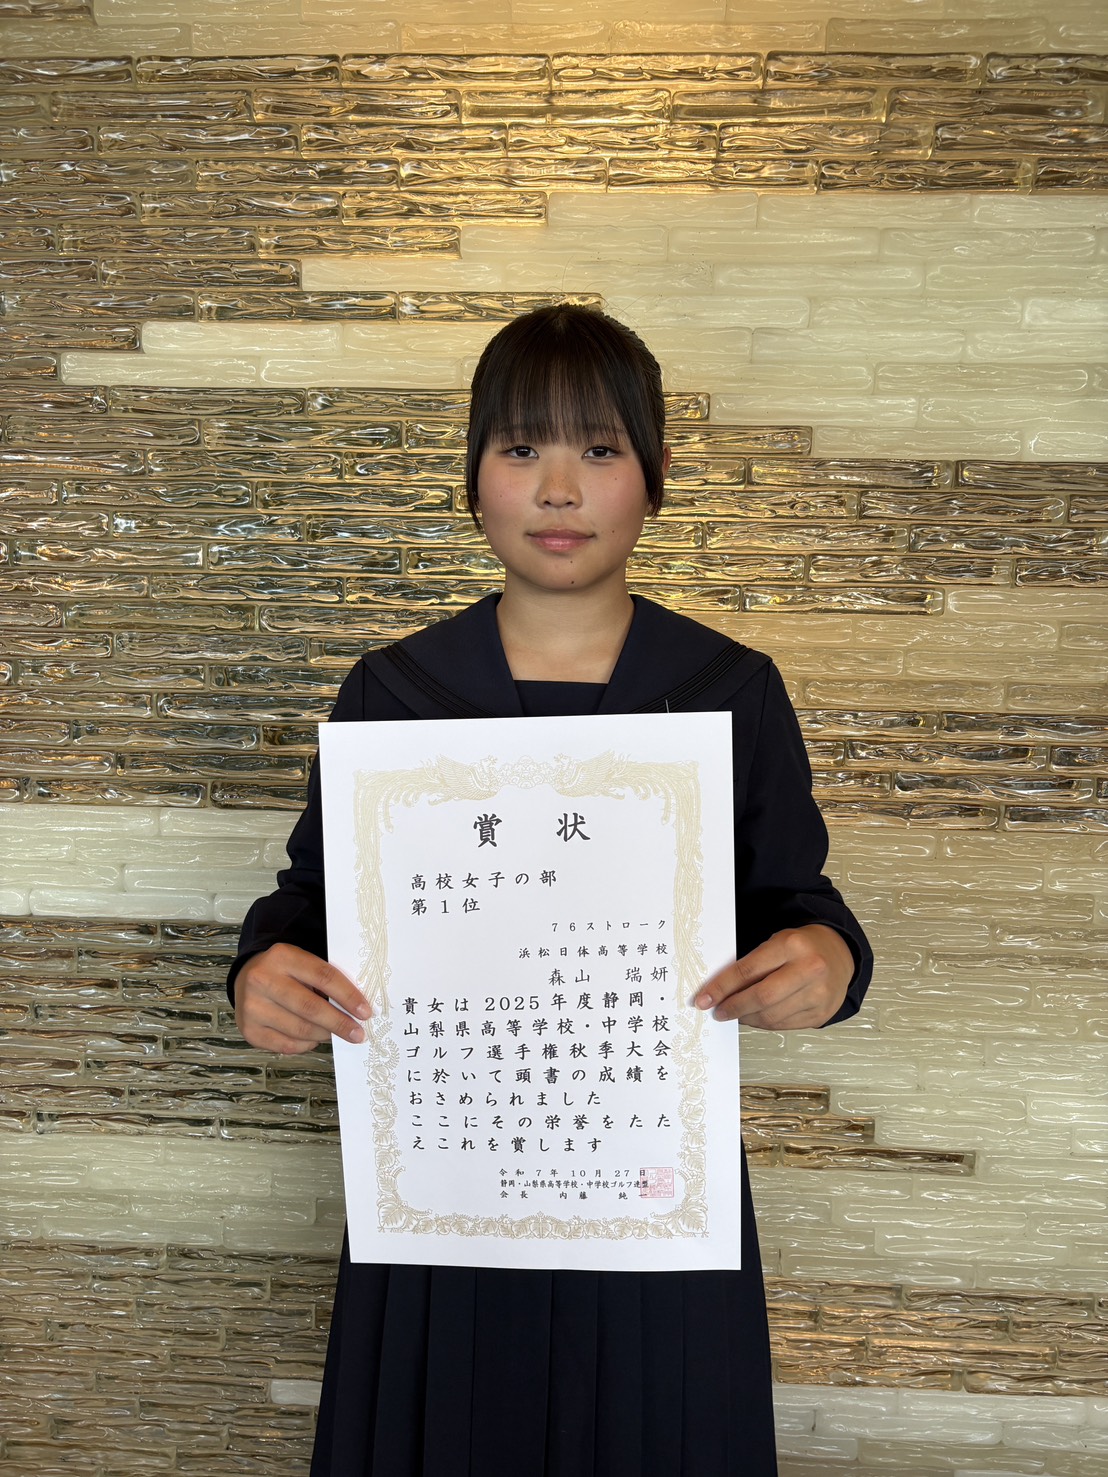 賞状
高校女子の部
第1位
76ストローク
浜松日体高等学校
森山 瑞妍
貴女は2025年度静岡・
山梨県高等学校・中学校
ゴルフ選手権秋季大会
に於いて頭書の成績を
おさめられました
ここにその栄誉をたた
えこれを賞します
令和7年10月27日
静岡・山梨県高等学校・中学校ゴルフ連盟
会長 内藤 純一